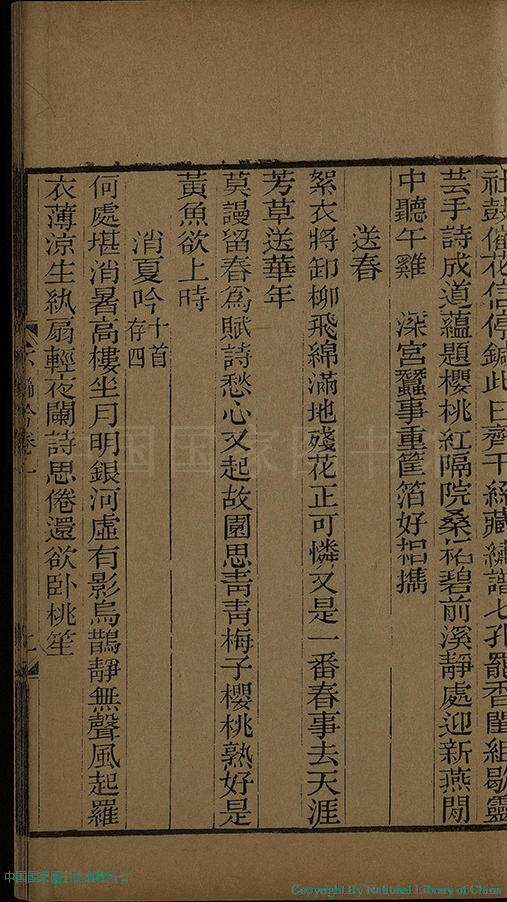 社鼓催花信停鍼此日齊千絲藏繡譜七孔罷香閨組歇靈
芸手詩成道蘊題櫻桃紅隔院桑柘碧前溪靜處迎新燕閒
中聽午雞　深宮蠶事重筐箔好相攜
送春
絮衣將卸柳飛綿滿地殘花正可憐又是一番春事去天涯
芳草送華年
莫謾留春爲賦詩愁心又起故園思青青梅子櫻桃熟好是
黃魚欲上時
消夏吟十首存四
何處堪消暑高樓坐月明銀河虛有影烏鵲靜無聲風起羅
衣薄涼生紈扇輕夜闌詩思倦還欲卧桃笙
吟卷一
二
中国国家图书馆
Copyright By National Library of China